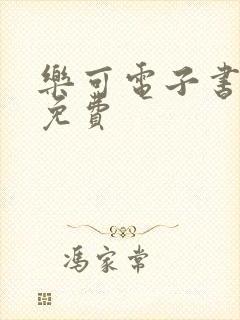 樂可電子書
免費
馮家常